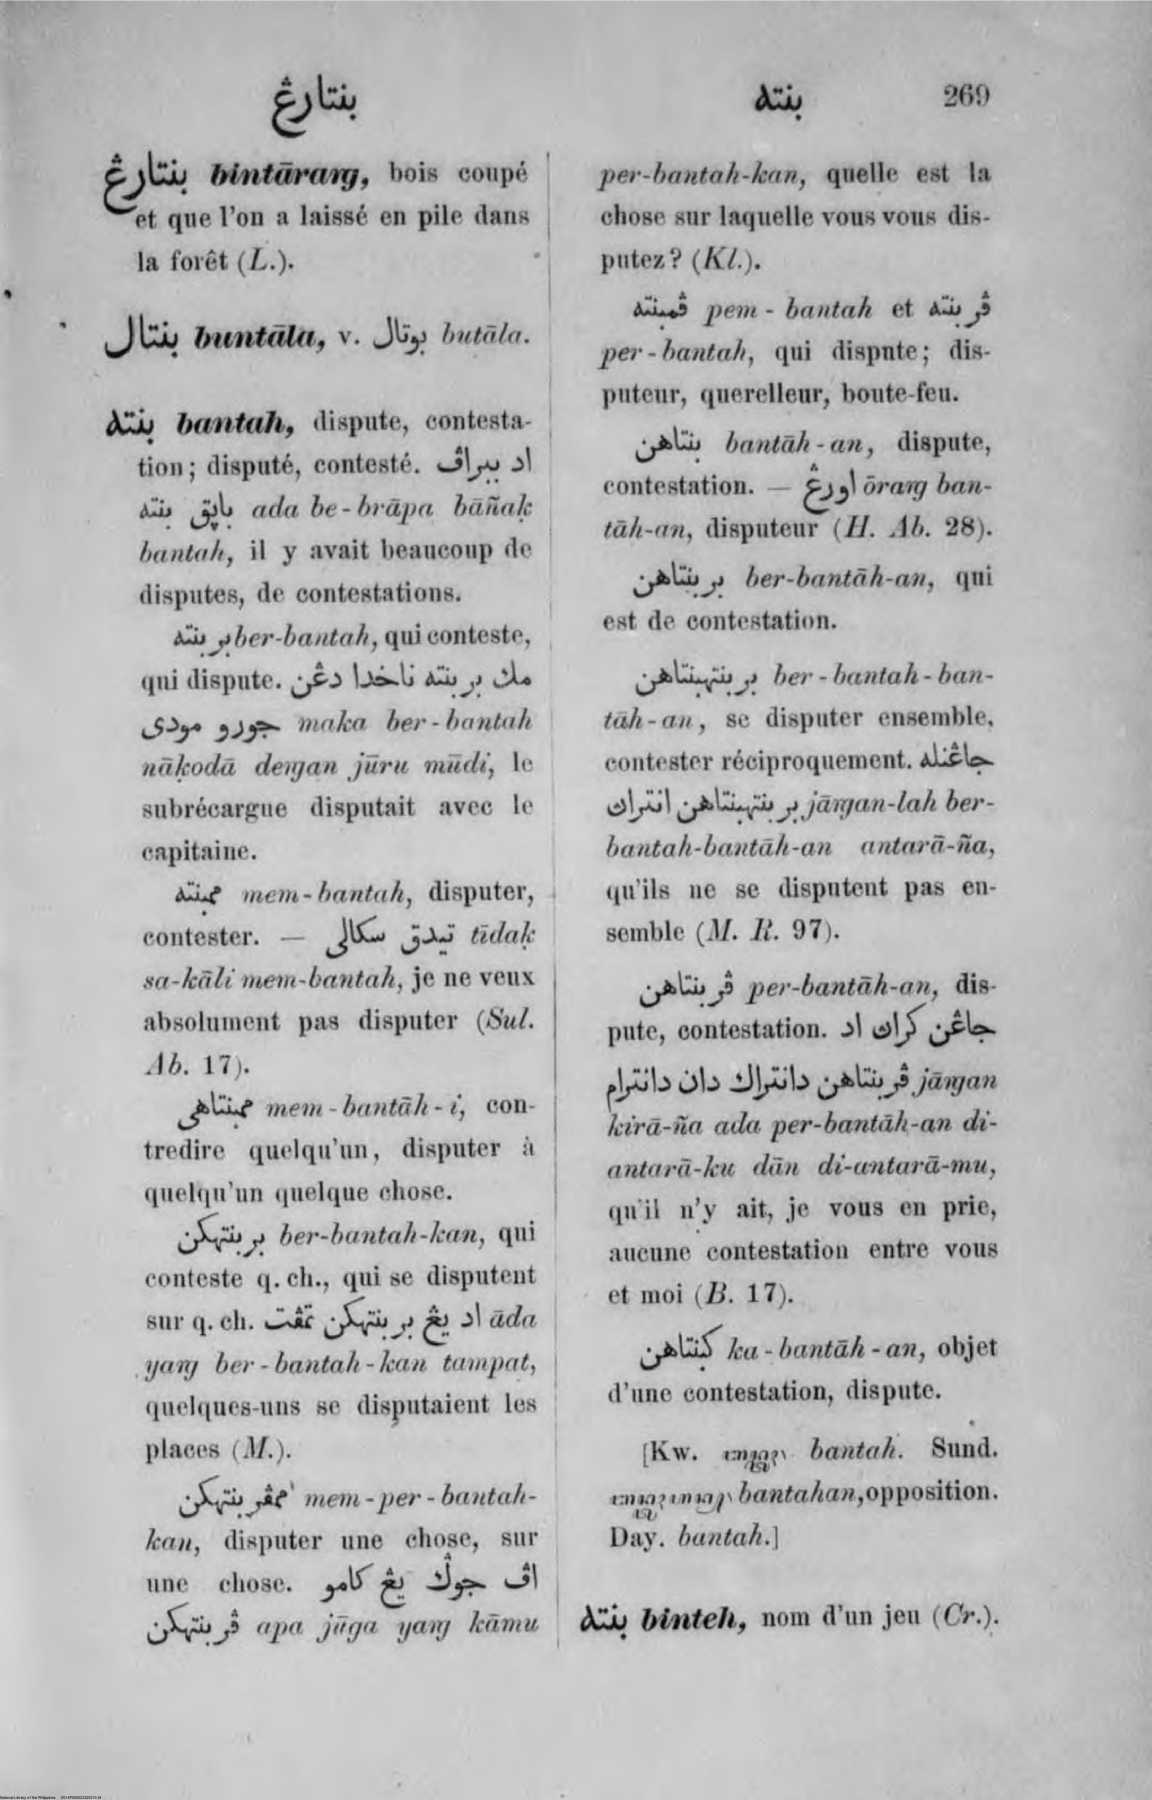 بنتارڠ
بنته 269
بنتارڠ bintāraŋ, bois coupé
et que l'on a laissé en pile dans
la forêt (L.).
بنتال buntāla, v. بوتال butāla.
بنته bantah, dispute, contesta-
tion; disputé, contesté. اد ببراڤ
باڽق بنته ada be-brāpa bāñaḳ
bantah, il y avait beaucoup de
disputes, de contestations.
بربنته ber-bantah, qui conteste,
qui dispute. مك بربنته ناخدا دڠن
جورو مودى maka ber-bantah
nāḳodā deŋan jūru mūdi, le
subrécargue disputait avec le
capitaine.
ممبنته mem-bantah, disputer,
contester. — تيدق سكالى tīdaḳ
sa-kāli mem-bantah, je ne veux
absolument pas disputer (Sul.
Ab. 17).
ممبنتاهى mem-bantāh-i, con-
tredire quelqu'un, disputer à
quelqu'un quelque chose.
بربنتهكن ber-bantah-kan, qui
conteste q. ch., qui se disputent
sur q. ch. اد يڠ بربنتهكن تمڤت āda
yaŋ ber-bantah-kan tampat,
quelques-uns se disputaient les
places (M.).
ممڤربنتهكن mem-per-bantah-
kan, disputer une chose, sur
une chose. اڤ جوݢ يڠ كامو
ڤربنتهكن apa jūga yaŋ kāmu
per-bantah-kan, quelle est la
chose sur laquelle vous vous dis-
putez? (Kl.).
ڤمبنته pem-bantah et ڤربنته
per-bantah, qui dispute; dis-
puteur, querelleur, boute-feu.
بنتاهن bantāh-an, dispute,
contestation. — اورڠ ōraŋ ban-
tāh-an, disputeur (H. Ab. 28).
بربنتاهن ber-bantāh-an, qui
est de contestation.
بربنتهبنتاهن ber-bantah-ban-
tāh-an, se disputer ensemble,
contester réciproquement. جاڠنله
بربنتهبنتاهن انتراڽ jāŋan-lah ber-
bantah-bantāh-an antarā-ña,
qu'ils ne se disputent pas en-
semble (M. R. 97).
ڤربنتاهن per-bantāh-an, dis-
pute, contestation. جاڠن كراڽ اد
ڤربنتاهن دانتراك دان دانترام jāŋan
kirā-ña ada per-bantāh-an di-
antarā-ku dān di-antarā-mu,
qu'il n'y ait, je vous en prie,
aucune contestation entre vous
et moi (B. 17).
كبنتاهن ka-bantāh-an, objet
d'une contestation, dispute.
[Kw. bantah. Sund.
bantahan, opposition.
Day. bantah.]
بنته binteh, nom d'un jeu (Cr.).